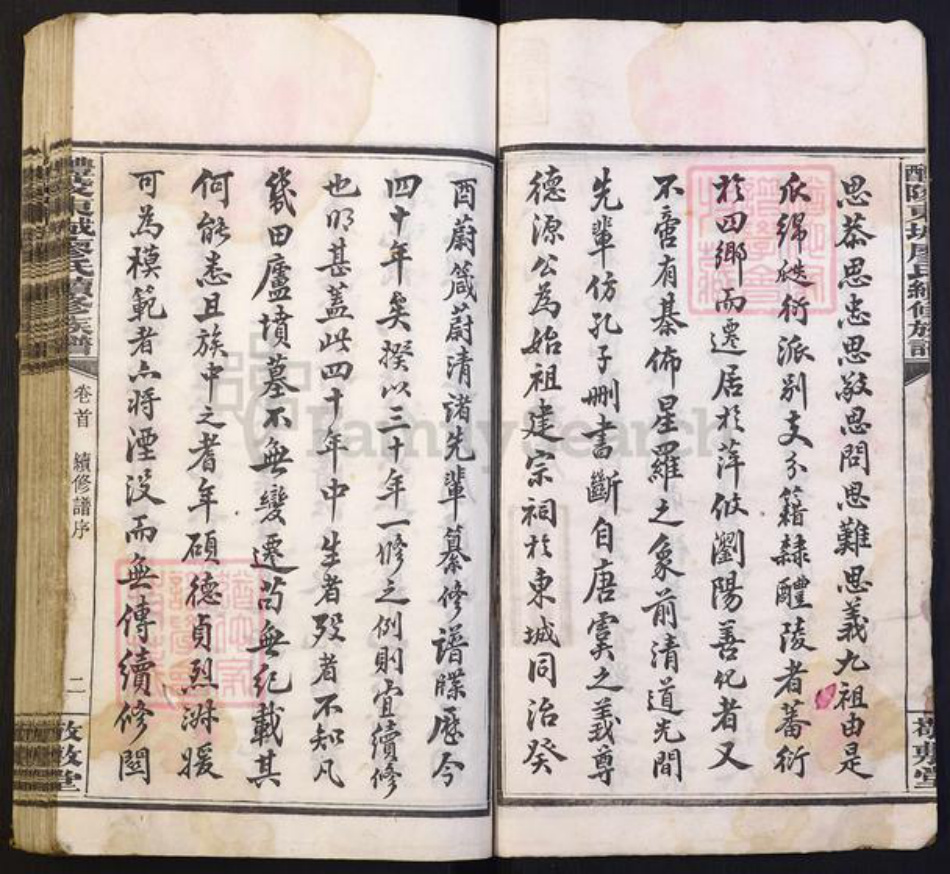 思恭思忠思敬思問思難思義九祖由是
瓜綿瓞衍派別支分籍隸醴陵者蕃衍
於四鄉而遷居於萍攸瀏陽善化者又
不啻有棊佈星羅之象前清道光間
先輩仿孔子刪書斷自唐虞之義尊
德源公為始祖建宗祠於東城同治癸
酉蔚箴蔚清諸先輩纂修譜牒歷今
四十年矣揆以三十年一修之例則宜續修
也明甚蓋此四十年中生者歿者不知凡
幾田廬墳墓不無變遷茍無紀載其
何能悉且族中之耆年碩德貞烈淑媛
可為模範者亦將湮沒而無傳續修闗
醴陵東城廖氏續修族譜
卷首
續修譜序
二
敦敘堂
FamilySearch